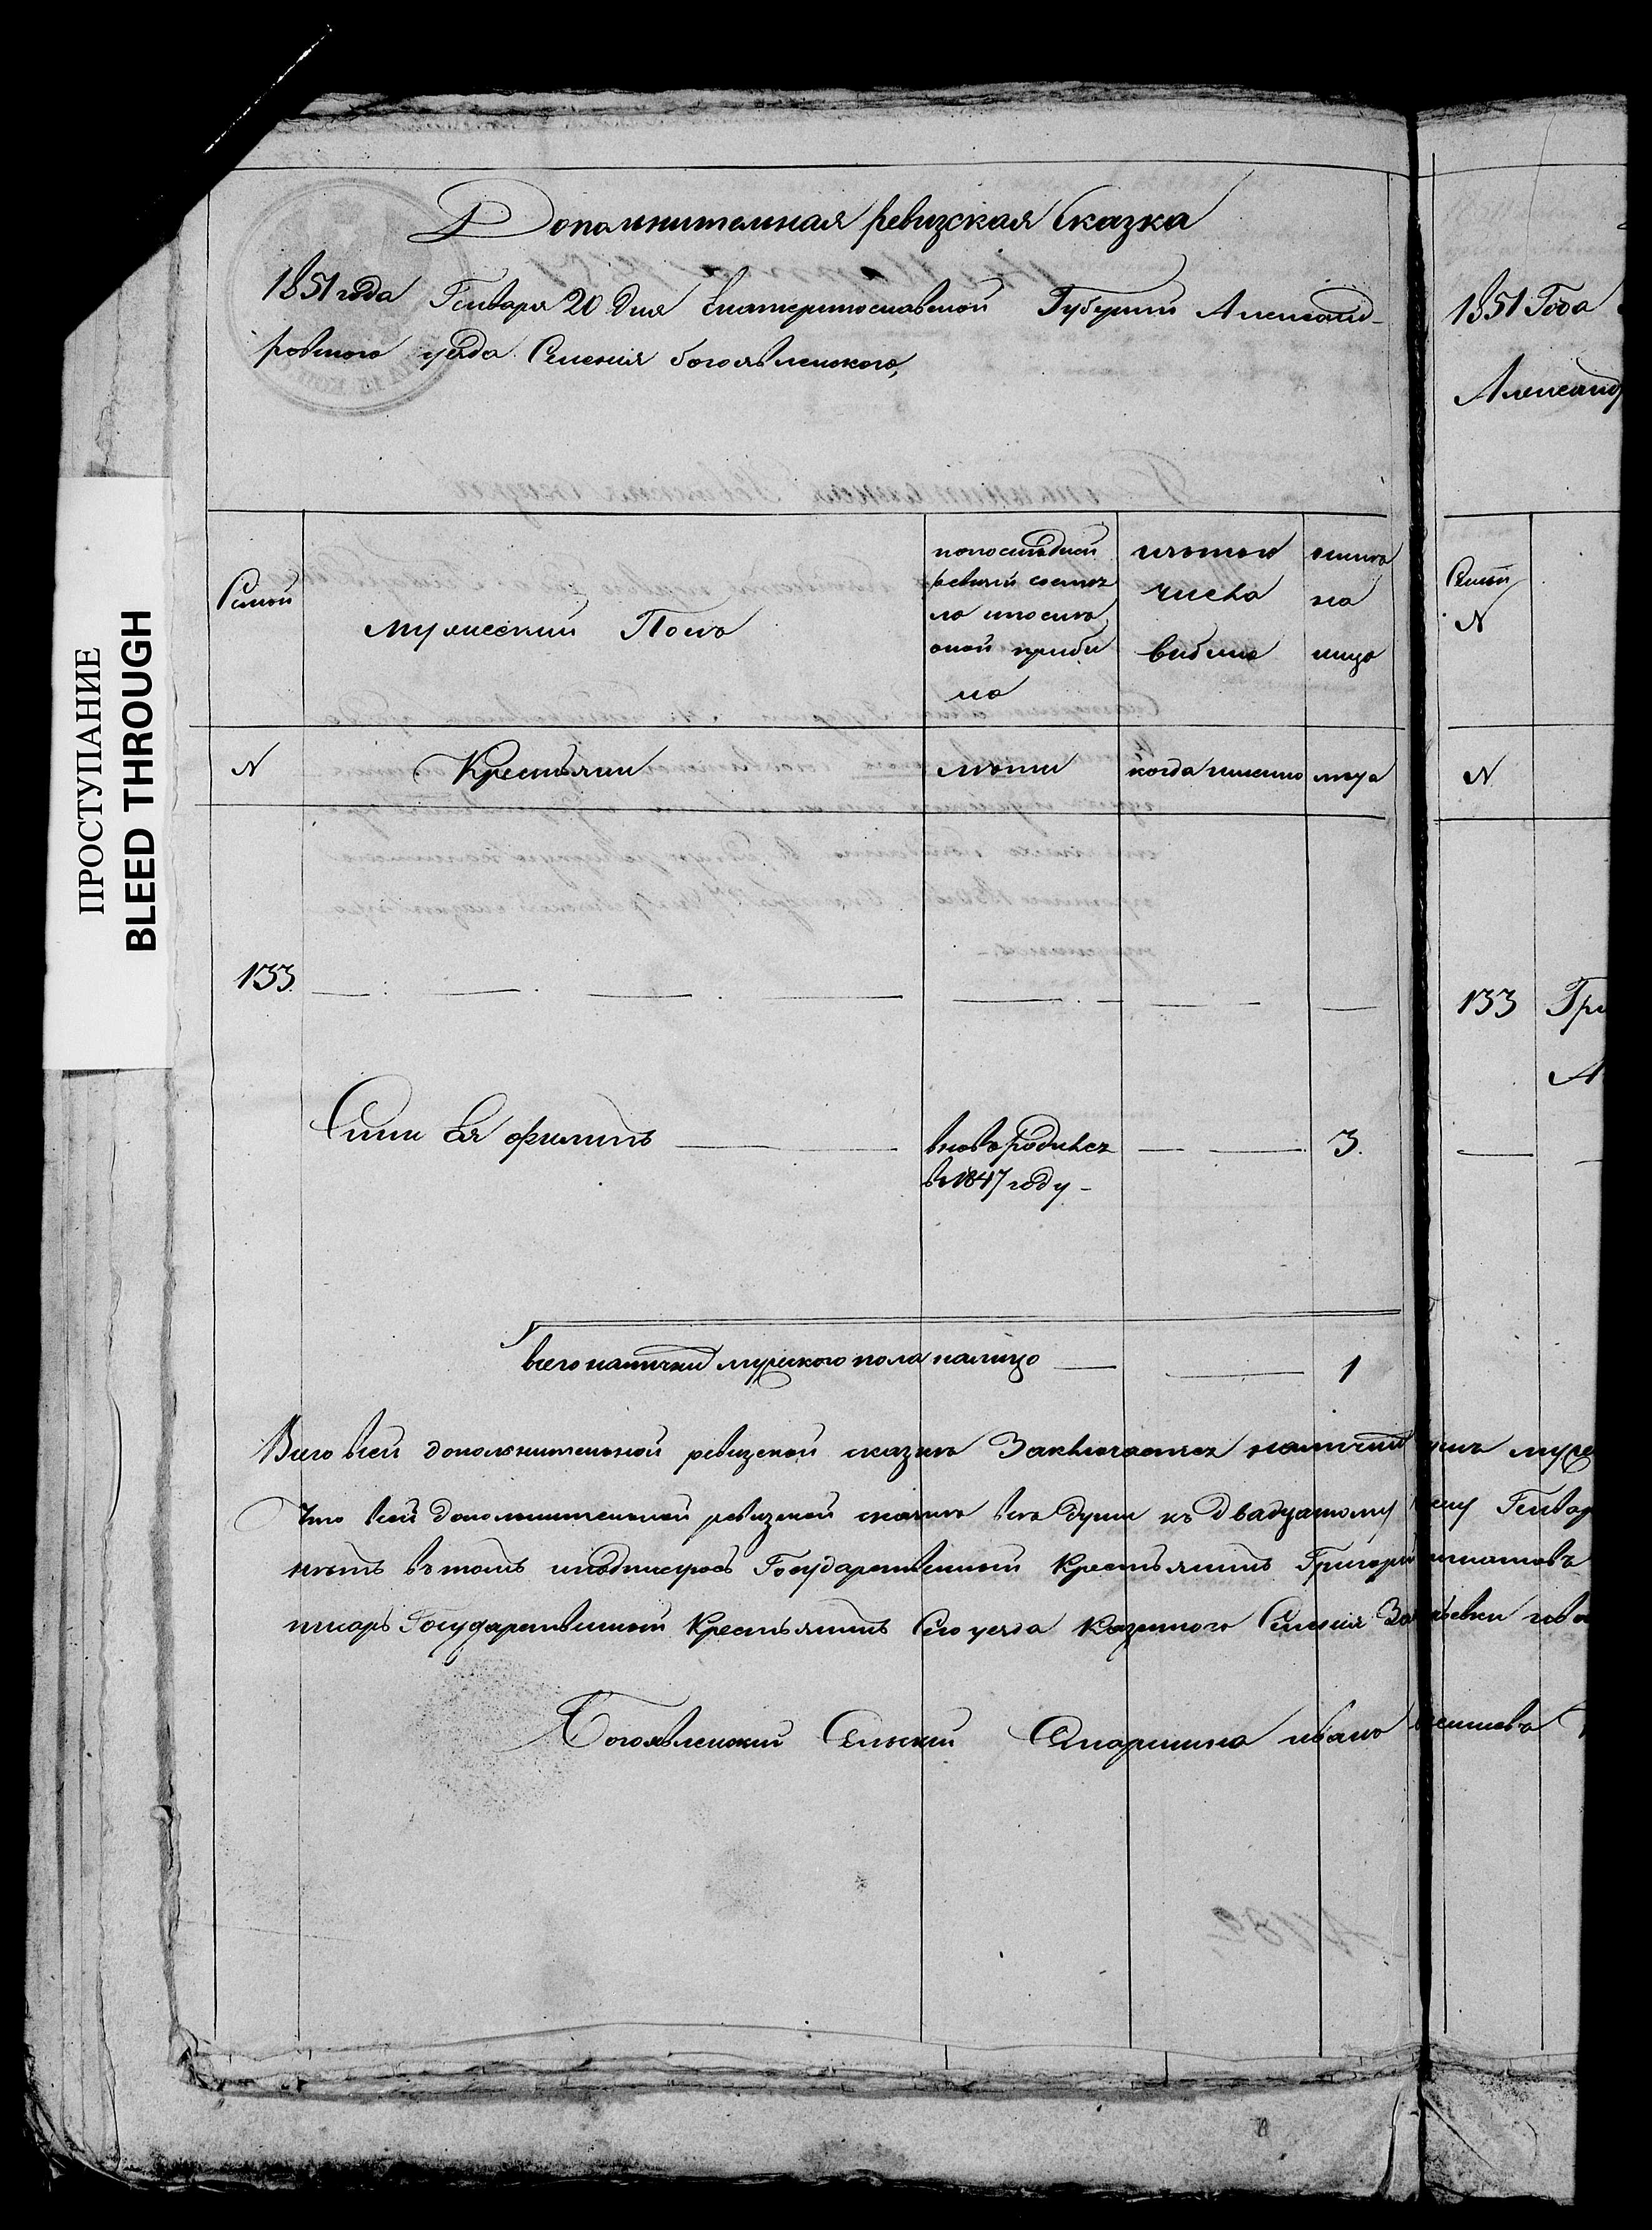 ПРОСТУПАНИЕ
BLEED THROUGH
Дополнительная ревизская Сказка
1851 года Генваря 20 Дня Екатеринославской Губернии Александ-
ровского уезда Селения богоявленского,
Семей
мужеский Полъ
попоследней
ревизи состоя
ло ипосле
оной прибы
ло
изтого
числа
выбыло
ныне
на
лицо
N
Крестьяни
лѣты
когда именно
лета
133
Сынъ Ея филипъ
вновь родился
3.
въ 1847 году -
всего наличныхъ мужескаго пола налицо
1
Всего всей дополнительной ревизской сказке Заключается наличныхъ душъ муже
Что всей дополнительной ревизской сказке все души къ Двадцатому Генвар
нетъ въ томъ иподписуюсь Государственный Крестьянинъ Григори
писарь Государственный Крестьянинъ Сего уезда Казенного Селения
Богоявленский Сельский Старшина иванъ
1851 Года
Александ
Семей
N
N
133 Гри
А